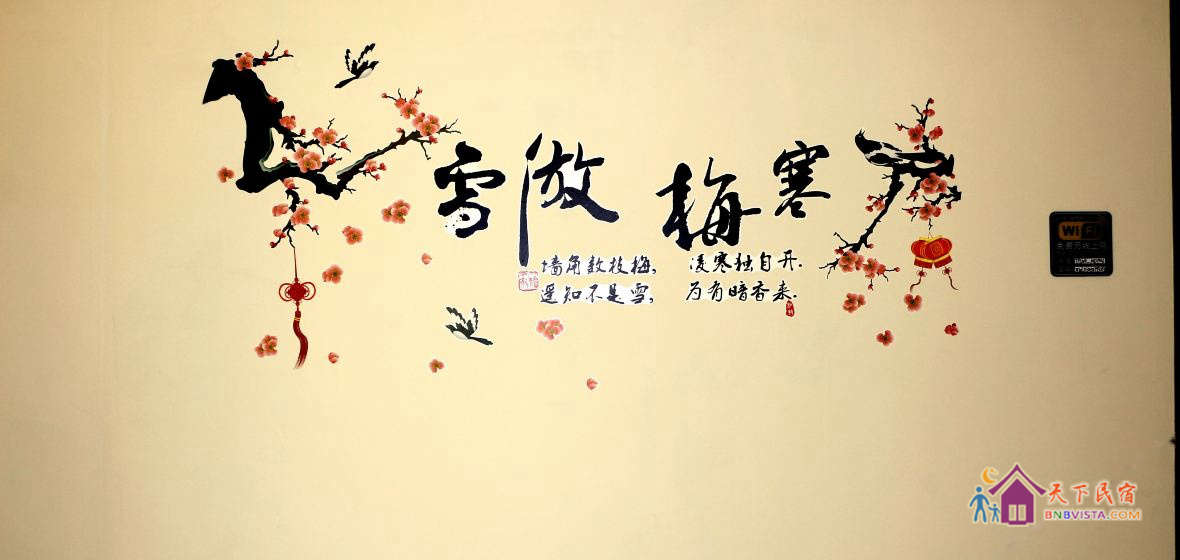 雪傲 梅寒
墙角数枝梅, 凌寒独自开.
遥知不是雪, 为有暗香来.
WiFi
天下民宿
BNBVISTA.COM